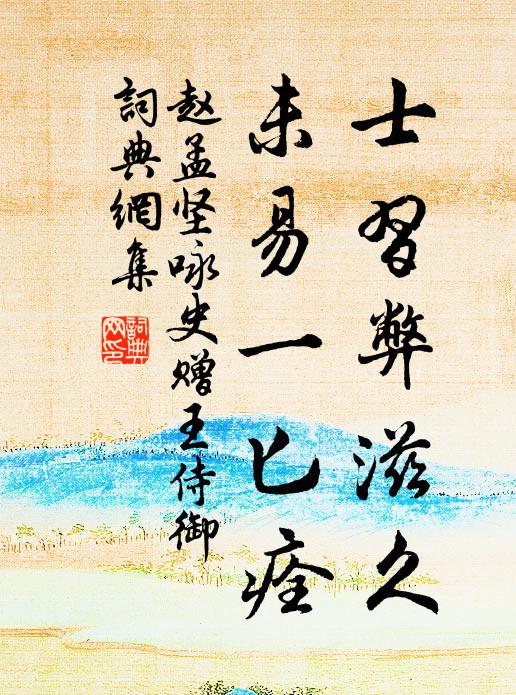 士習弊滋久
未易一匕痊
赵孟坚咏史赠王侍御
詞典網集
詞典网印